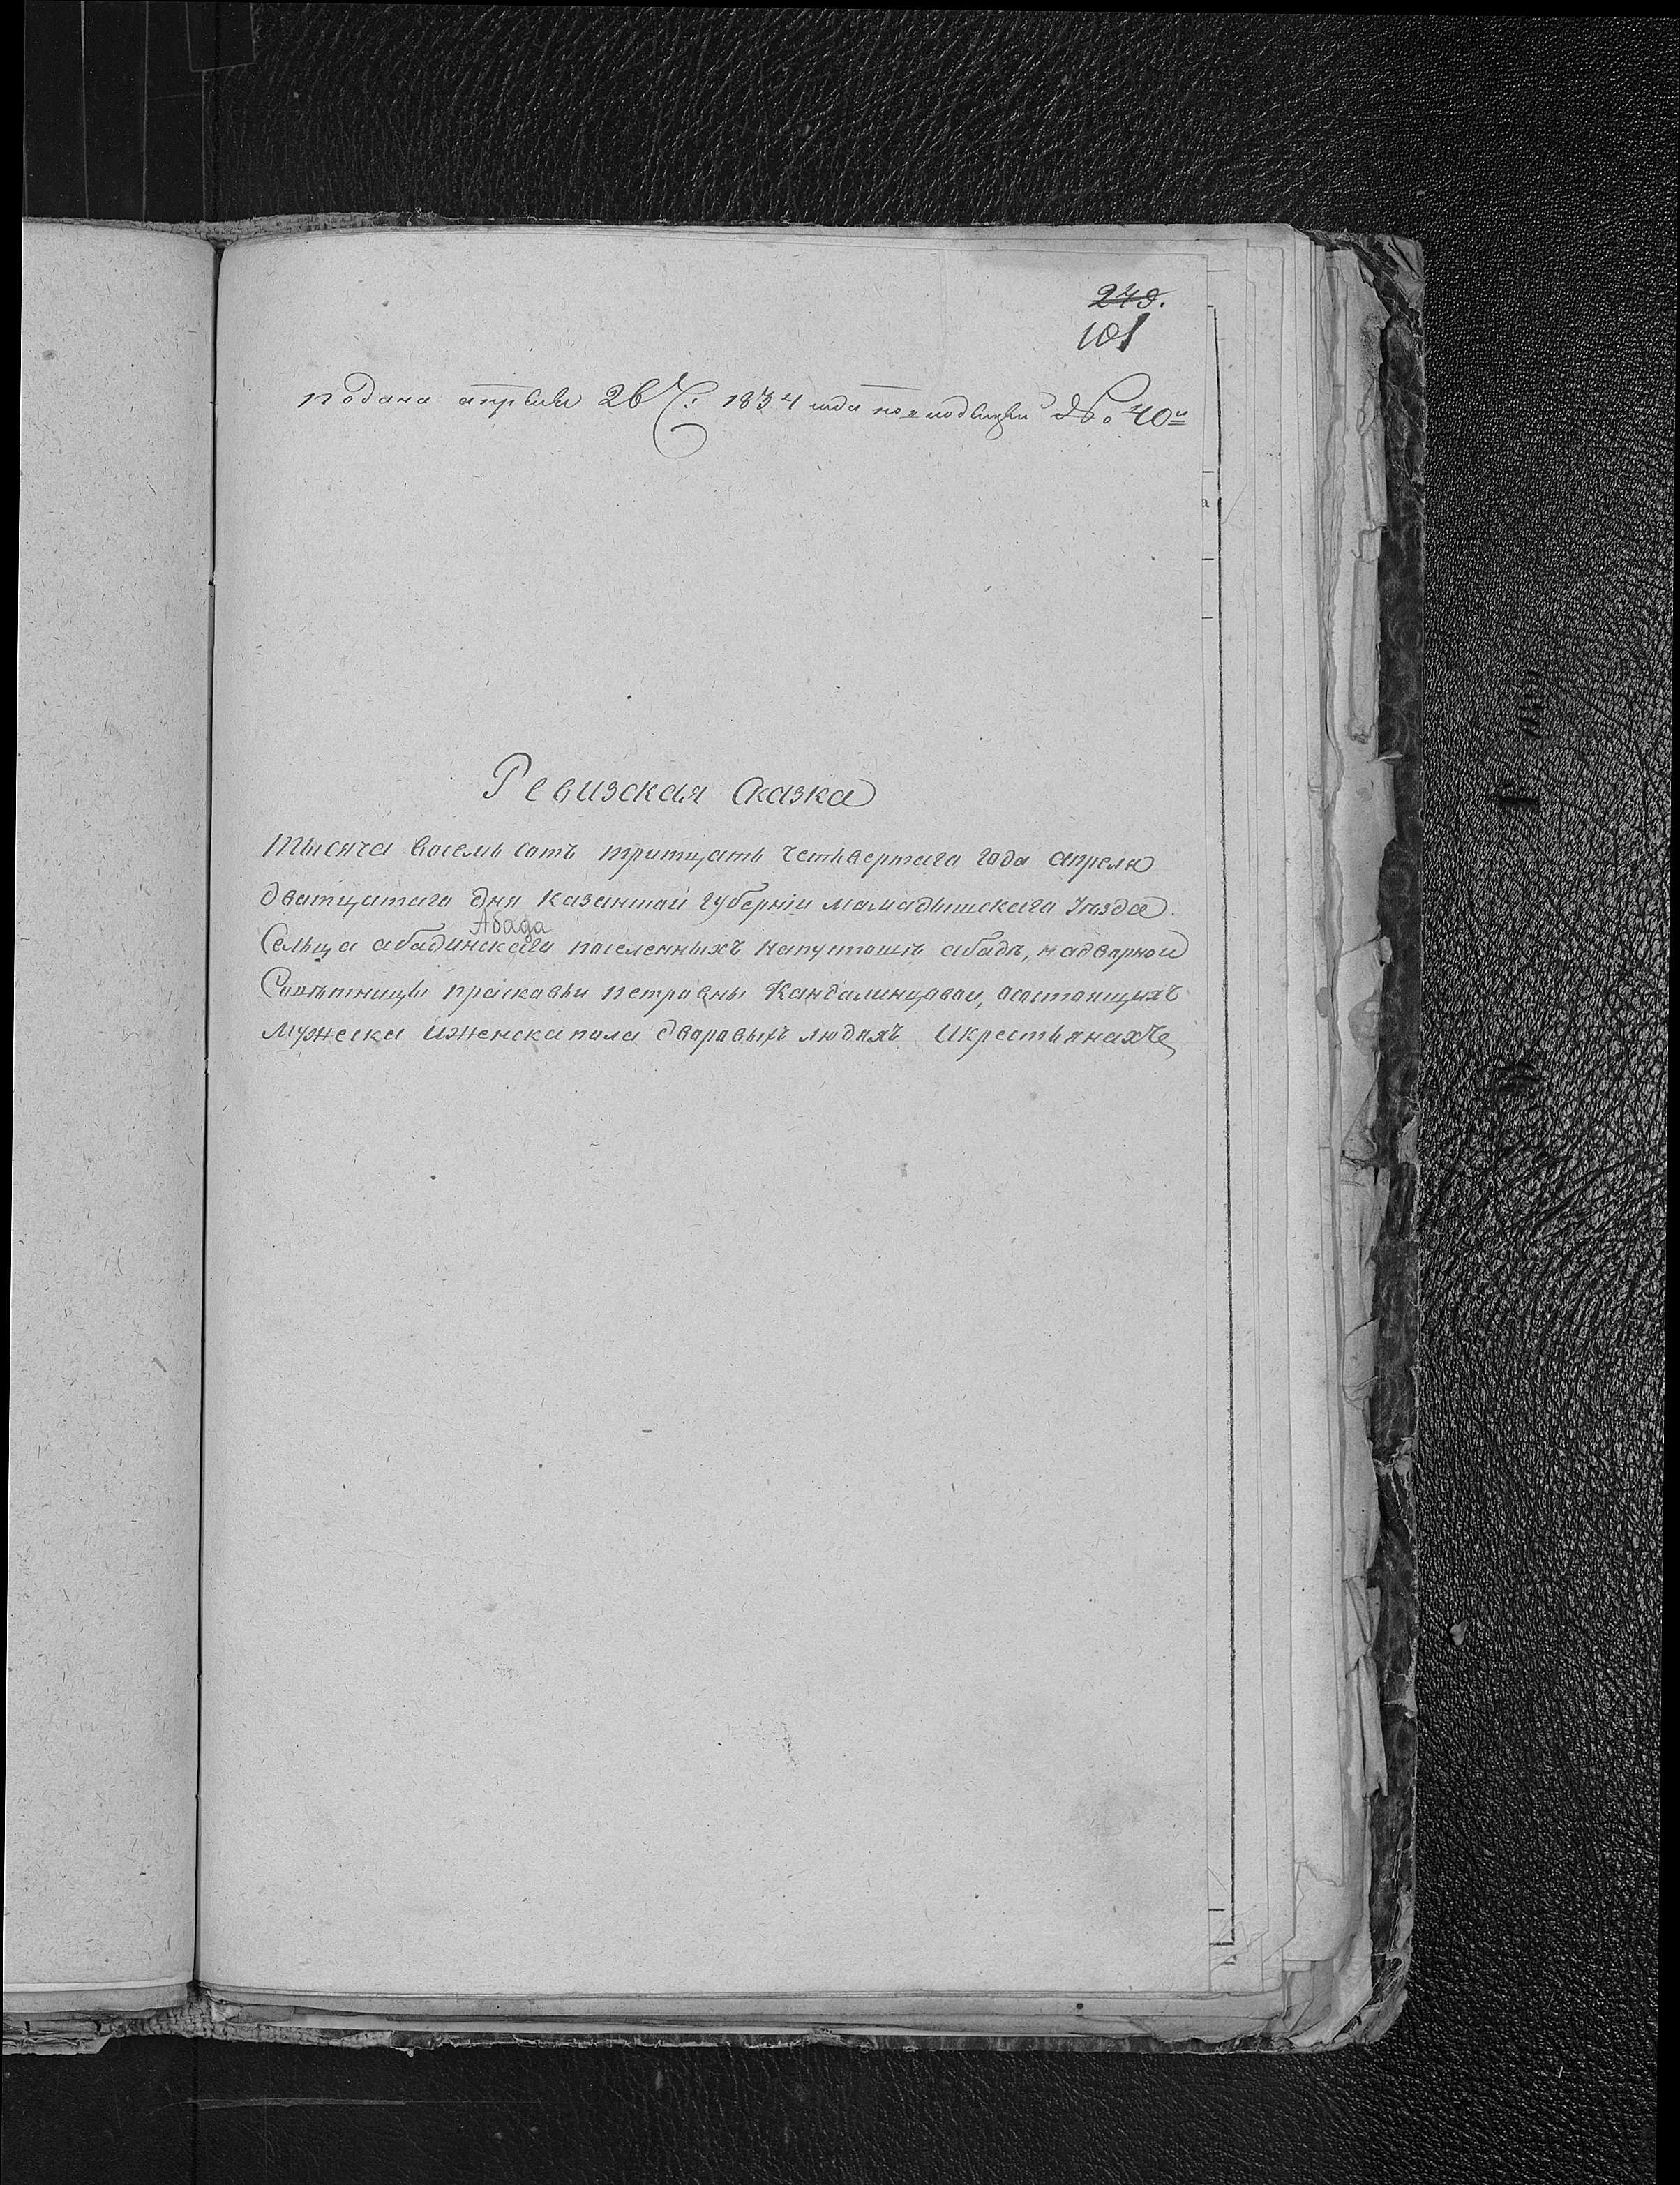 279.
101
подана апреля 26 ч: 1834 года № 40й
Ревизская Сказка
Тысяча восемь сотъ тритцать четвертаго года апреля
дватцатаго дня казанской губерніи мамадышскаго уѣзда
Абада
Сельца абадинскаго поселенныхъ напустошѣ абадѣ, надворной
Совѣтницы прасковьи петровны Кандалинцовои, осостоящихъ
Мужеска иженска пола дворовыхъ людяхъ Икрестьянахъ